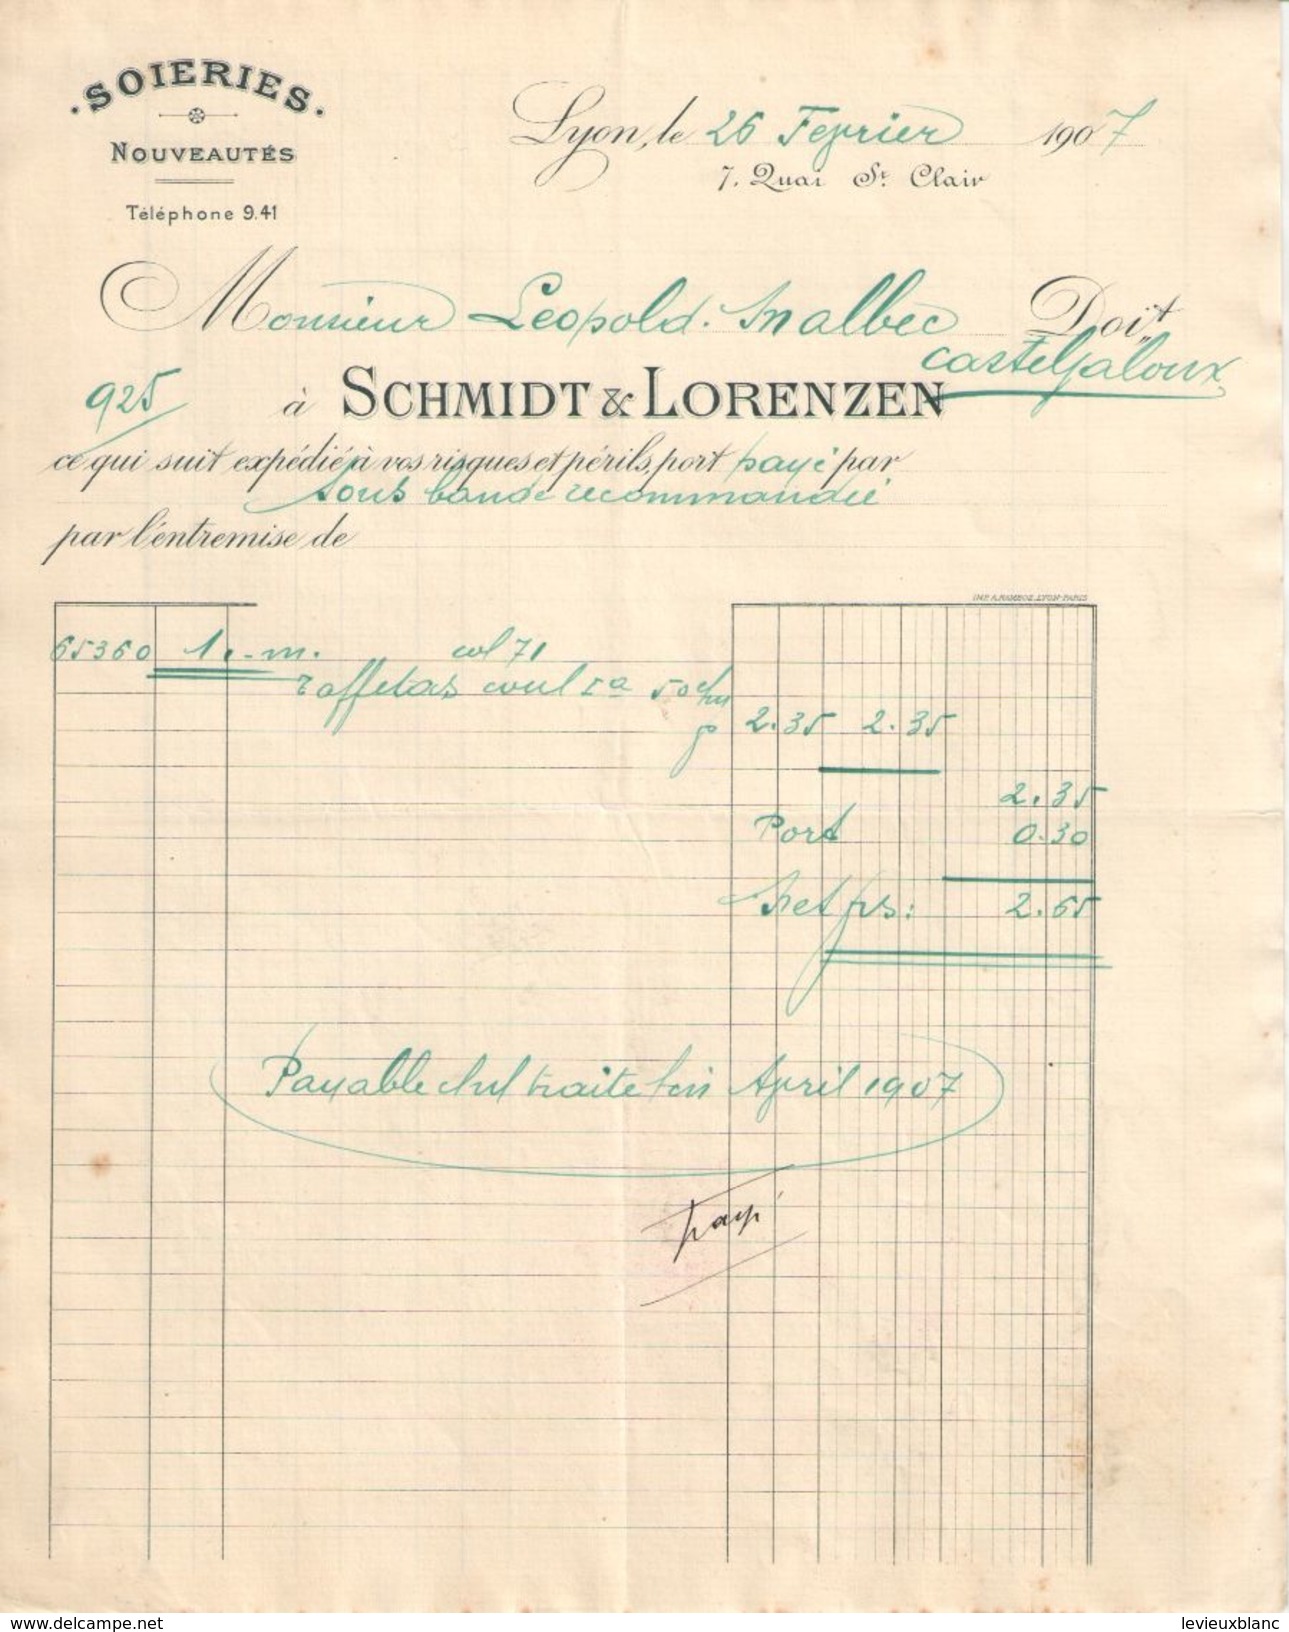 · SOIERIES ·
NOUVEAUTÉS
Téléphone 9.41
Lyon, le 26 Fevrier 1907
7, Quai St. Clair
Monsieur Leopold Malbec Doit
Casteljaloux
925 à SCHMIDT & LORENZEN
ce qui suit expédié à vos risques et périls, port payé par
sous bande recommandée
par l'entremise de
IMP. A. RAMBOZ, LYON-PARIS
65360 1.- m. col 71
Taffetas coul 50
2.35 2.35
2.35
Port 0.30
Net frs: 2.65
Payable traite fin April 1907
payé
www.delcampe.net
levieuxblanc